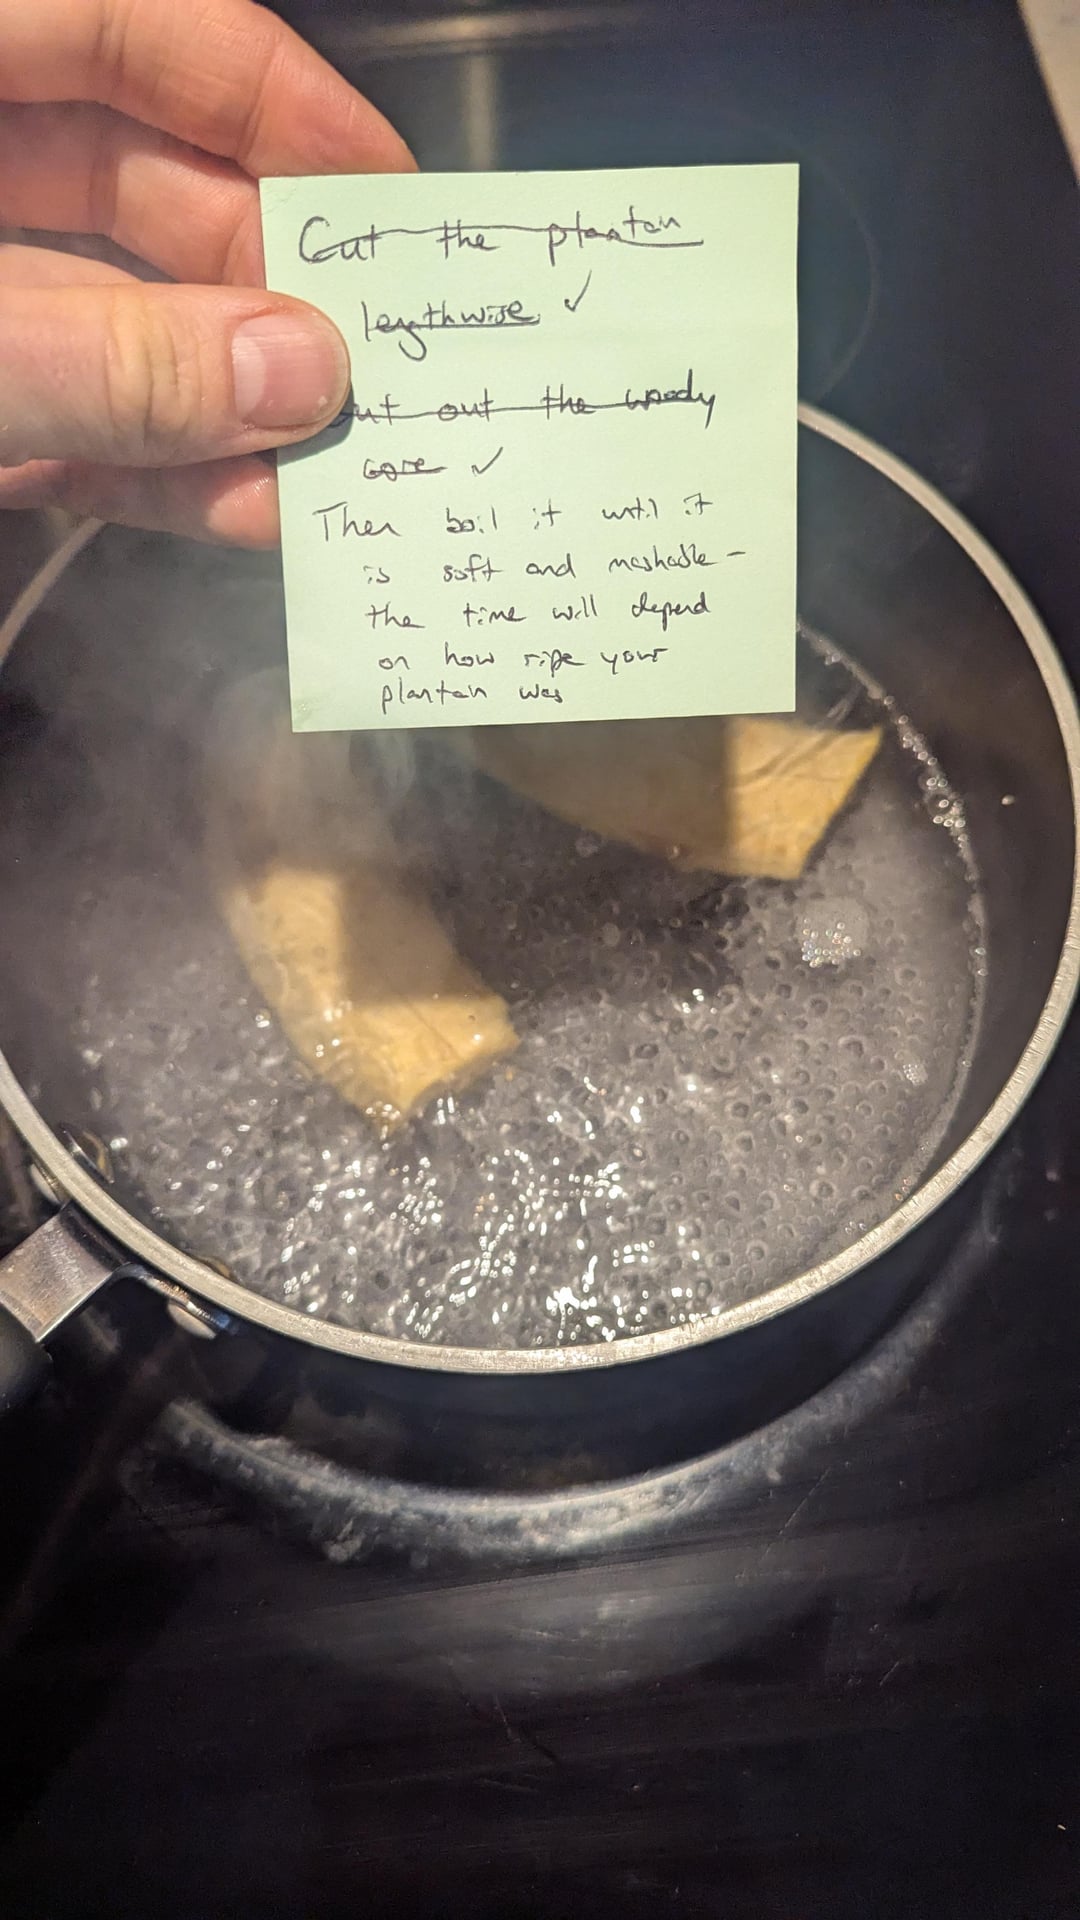 Cut the plantan
lengthwise ✓
ut out the woody
core ✓
Then boil it until it
is soft and mashable -
the time will depend
on how ripe your
plantan was